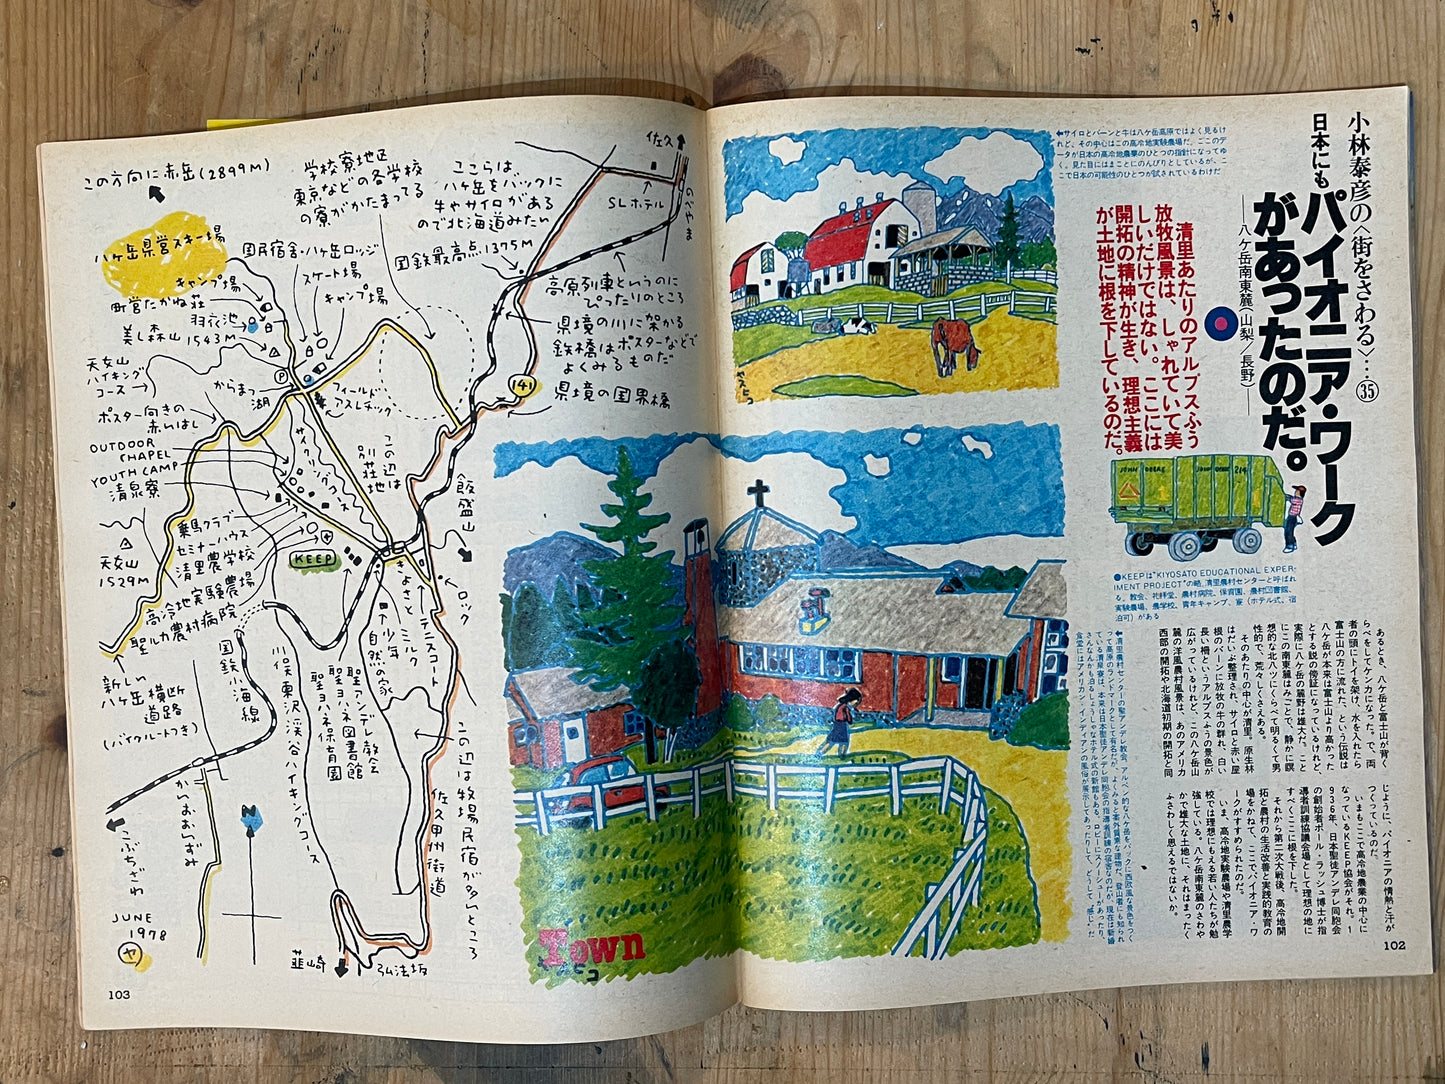 小林泰彦の〈街をさわる〉…㉟
日本にも
パイオニア・ワーク
があったのだ。
―八ケ岳南東麓(山梨/長野)―
清里あたりのアルプスふう
放牧風景は、しゃれていて美
しいだけではない。ここには
開拓の精神が生き、理想主義
が土地に根を下しているのだ。
←サイロとバーンと牛は八ケ岳高原ではよく見るけ
れど、その中心はこの高冷地実験農場だ。ここのデ
ータが日本の高冷地農業のひとつの指針になってゆ
く。見た目にはまことにのんびりとしているが、こ
こで日本の可能性のひとつが試されているわけだ
ヤスヒコ
JOHN DEERE
JOHN DEERE 214
●KEEPは"KIYOSATO EDUCATIONAL EXPER-
IMENT PROJECT"の略、清里農村センターと呼ばれ
る。教会、礼拝堂、農村病院、保育園、農村図書館、
実験農場、農学校、青年キャンプ、寮(ホテル式、宿
泊可)がある
あるとき、八ケ岳と富士山が背く
らべをしてケンカになった。で、両
者の頭にトイを架け、水を入れたら
富士山の方に流れた、という伝説は
八ケ岳が本来は富士山より高かった
とする説の傍証になっているけれど、
実際に八ケ岳の麓野は雄大だ。こと
にこの南東麓はみごとで、静かに瞑
想的な北八ツにくらべて明るくて男
性的で、荒々しくさえある。
そのあたりの中心が清里。原生林
はだいぶ整理され、サイロと赤い屋
根のバーンに放牧の牛の群れ、白い
長い柵というアルプスふうの景色が
広がっているけれど、この八ケ岳山
麓の洋風農村風景は、あのアメリカ
西部の開拓や北海道初期の開拓と同
じように、パイオニアの情熱と汗が
つくっているのだ。
いまもここで高冷地農業の中心に
なっているKEEP協会がそれ。1
936年、日本聖徒アンデレ同胞会
の創始者ポール・ラッシュ博士が指
導者訓練協議会場として理想の地に
すべくここに根を下した。
それから第二次大戦後、高冷地開
拓と農村の生活改善と実践的教育の
場をかねて、ここでパイオニア・ワ
ークがすすめられたのだ。
いま、高冷地実験農場や清里農学
校では理想にもえる若い人たちが勉
強している。八ケ岳南東麓のさわや
かで雄大な土地に、それはまったく
ふさわしく思えるではないか。
102
Town
この方向に赤岳(2899M)
学校寮地区
東京などの各学校
の寮がかたまってる
ここらは、
八ケ岳をバックに
牛やサイロがある
ので北海道みたい
佐久
SLホテル
のべやま
八ケ岳県営スキー場
国民宿舎・八ケ岳ロッジ
スケート場
キャンプ場
国鉄最高点1375M
キャンプ場
町営たかね荘
羽衣池
美し森山
1543M
高原列車というのに
ぴったりのところ
県境の川に架かる
鉄橋はポスターなどで
よくみるものだ
県境の国界橋
141
天女山
ハイキング
コース
P
からまつ湖
フィールド
アスレチック
ポスター向きの
赤いはし
OUTDOOR
CHAPEL
YOUTH CAMP
清泉寮
サイクリングコース
この辺は
別荘地
飯盛山
乗馬クラブ
セミナーハウス
清里農学校
高冷地実験農場
聖ルカ農村病院
KEEP
天女山
1529M
きよさと
ロック
ミルク
テニスコート
少年
自然の家
聖アンデレ教会
聖ヨハネ図書館
聖ヨハネ保育園
国鉄小海線
川俣東沢渓谷ハイキングコース
新しい
八ケ岳横断
道路
(バイクルートつき)
この辺は牧場民宿が多いところ
佐久甲州街道
かいおおいずみ
こぶちざわ
N
JUNE
1978
ヤ
韮崎
弘法坂
103